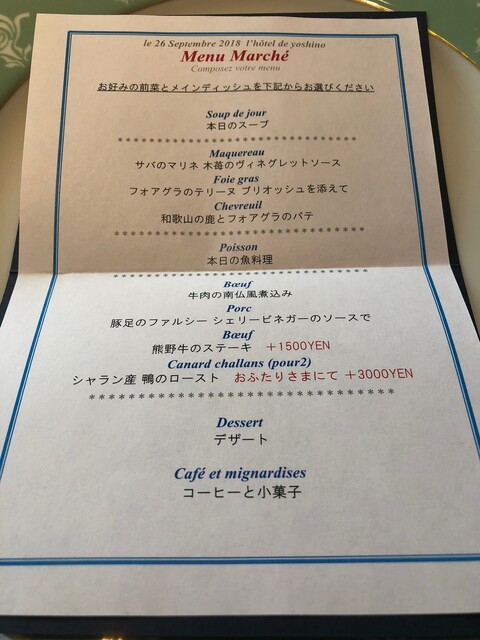 le 26 Septembre 2018 l'hôtel de yoshino
Menu Marché
Composez votre menu
お好みの前菜とメインディッシュを下記からお選びください
Soup de jour
本日のスープ
******************************
Maquereau
サバのマリネ 木苺のヴィネグレットソース
Foie gras
フォアグラのテリーヌ ブリオッシュを添えて
Chevreuil
和歌山の鹿とフォアグラのパテ
******************************
Poisson
本日の魚料理
******************************
Bœuf
牛肉の南仏風煮込み
Porc
豚足のファルシー シェリービネガーのソースで
Bœuf
熊野牛のステーキ +1500YEN
Canard challans (pour2)
シャラン産 鴨のロースト おふたりさまにて +3000YEN
******************************
Dessert
デザート
Café et mignardises
コーヒーと小菓子